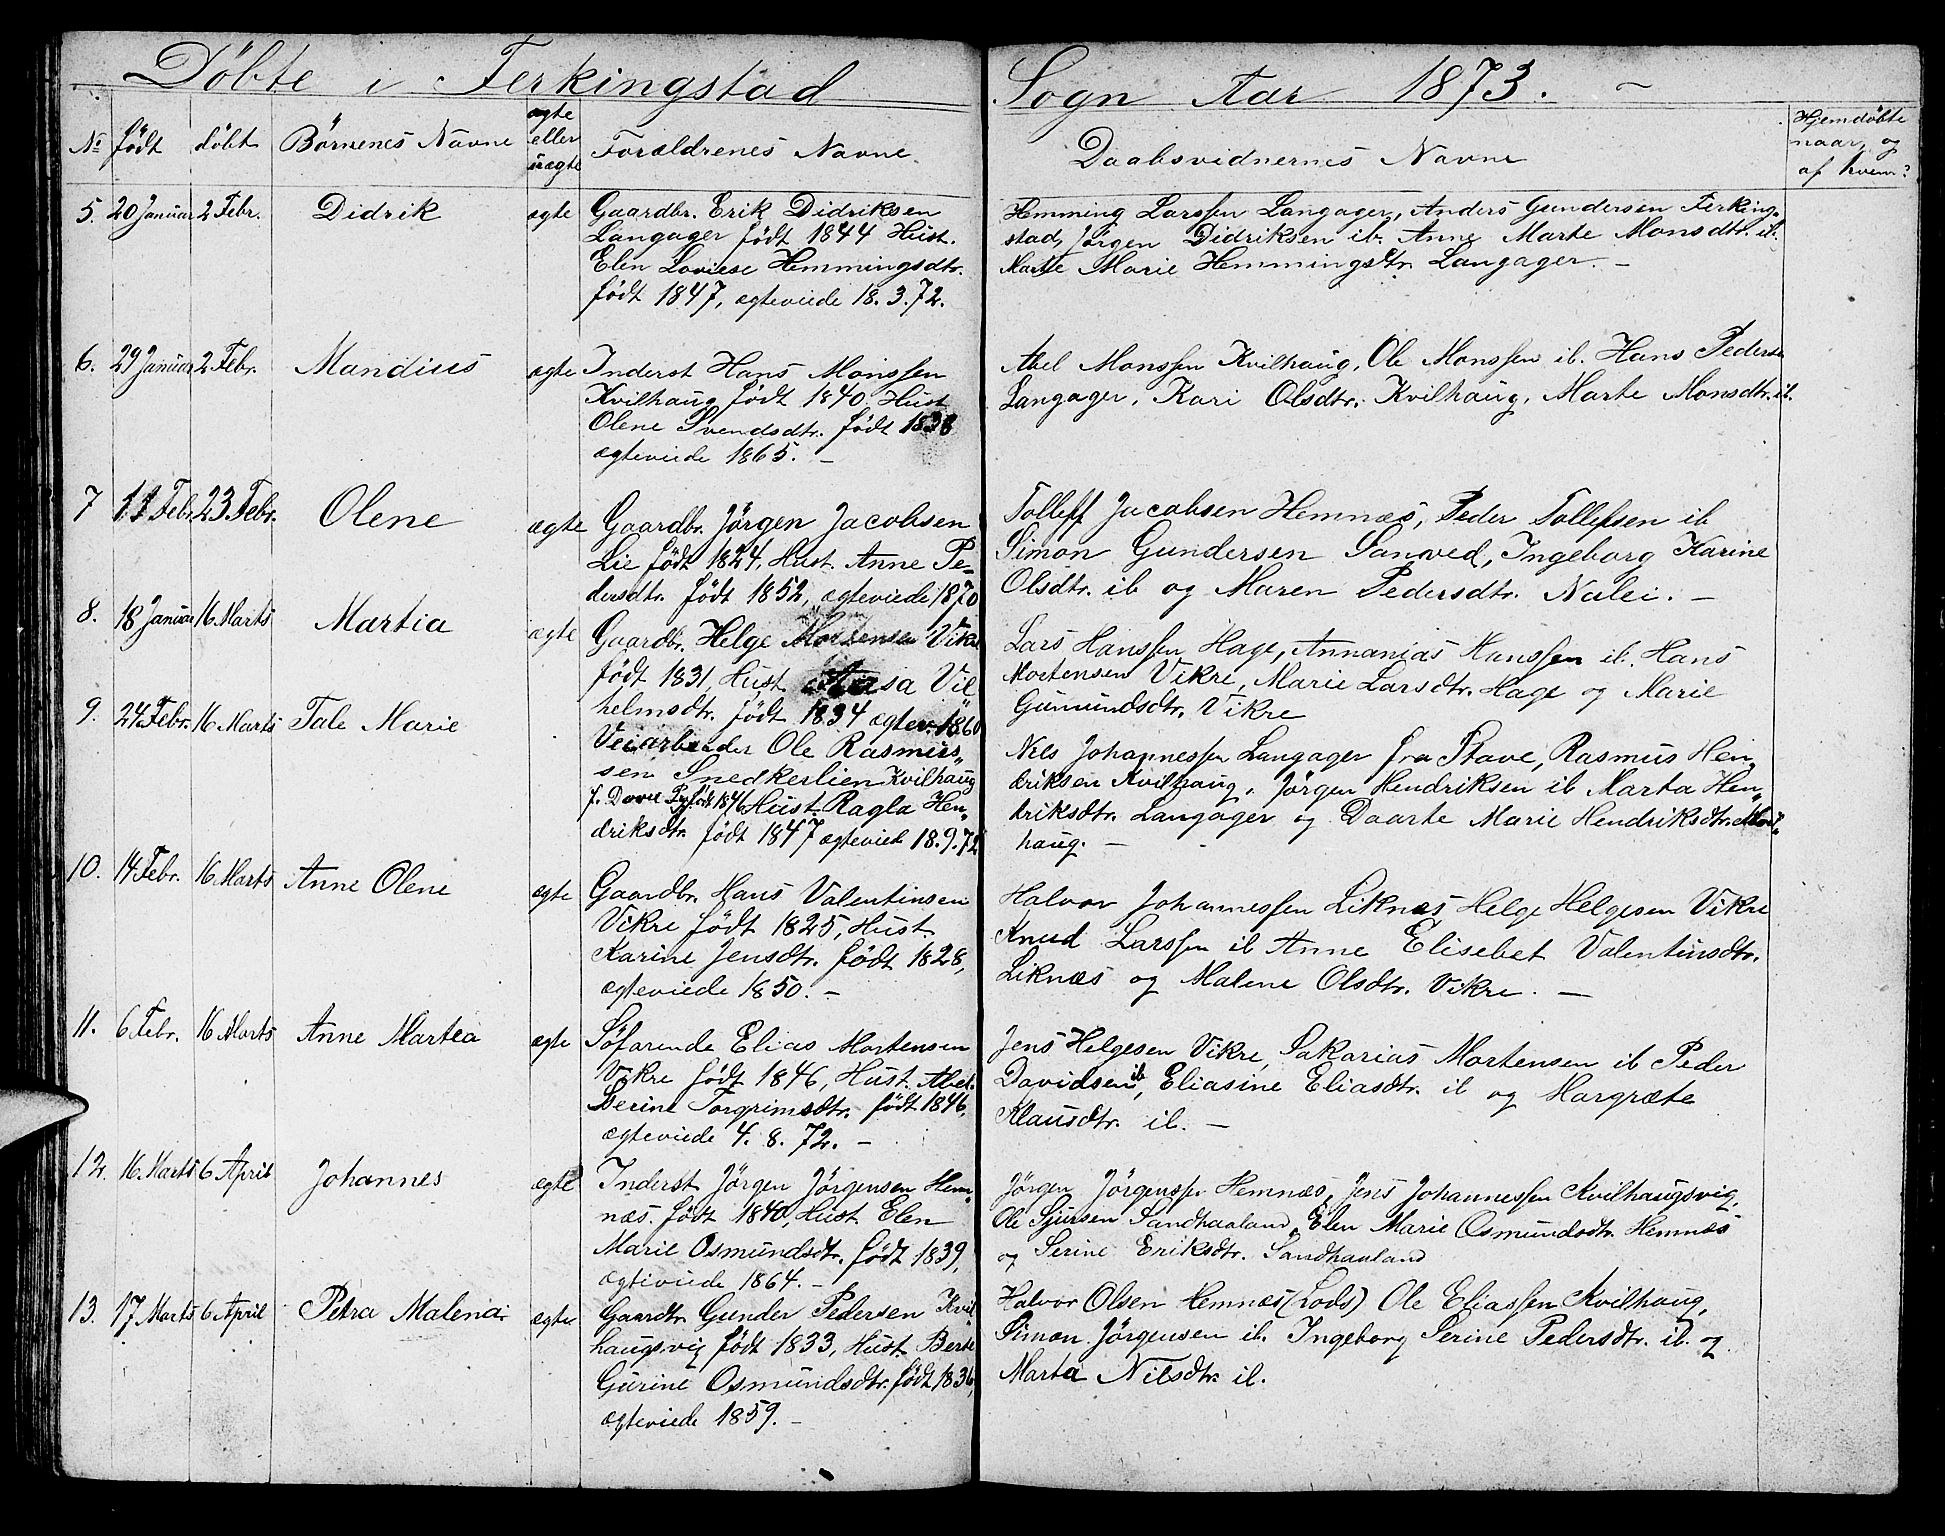 Döbte i Ferkingstad Sogn Aar 1873. ~
No födt döbt Börnenes Navne ægte eller uægte Forældrenes Navne. Daabsvidnernes Navne Hjemdöbte naar, og af hvem?
5. 20 Januar 2 Febr. Didrik ægte Gaardbr. Erik Didriksen
Langager födt 1844 Hust.
Elen Loviese Hemmingsdtr.
födt 1847, ægteviede 18.3.72.
Hemming Larssen Langager, Anders Gundersen Ferking-
stad, Jörgen Didriksen ib. Anne Marte Monsdtr. ib.
Marte Marie Hemmingsdtr. Langager. –
6. 29 Januar 2 Febr. Mandius ægte Inderst Hans Monssen
Kvilhaug födt 1840. Hust
Olene Svendsdtr. födt 1838
ægteviede 1865. –
Abel Monssen Kvilhaug, Ole Monssen ib. Hans Peders
Langager, Kari Olsdtr. Kvilhaug, Marte Monsdtr. ib.
7 11 Febr 23 Febr. Olene ægte Gaardbr. Jörgen Jacobsen
Lie födt 1824, Hust. Anne Pe-
dersdtr. födt 1852, ægteviede 1870
Tolleff Jacobsen Hemnæs, Peder Tollefsen ib
Simon Gundersen Sanved, Ingeborg Karine
Olsdtr. ib og Maren Pedersdtr. Nalei. –
8. 18 Januar 16 Marts Martia ægte Gaardbr. Helge Mortensen Vikre
födt 1831, Hust. Aasa Vil-
helmsdtr. födt 1834 ægtev. 1860
Lars Hanssen Hage, Annanias Hanssen ib. Hans
Mortensen Vikre, Marie Larsdtr. Hage og Marie
Gumundsdtr. Vikre
9. 24 Febr. 16 Marts Tale Marie Veiarbeider Ole Rasmus-
sen Snedkerlien Kvilhaug
f. födt 1846 Hust. Ragla Hen-
driksdtr. födt 1847 ægteviet 18.9.72
Nels Johannessen Langager fra Stave, Rasmus Hen-
driksen Kvilhaug, Jörgen Hendriksen ib Marta Hen-
driksdtr. Langager og Daarte Marie Hendriksdtr.
haug. –
10. 14 Febr. 16 Marts Anne Olene ægte Gaardbr. Hans Valentinsen
Vikre födt 1825, Hust.
Karine Jensdtr. födt 1828,
ægteviede 1850. –
Halvor Johannessen Liknæs Helge Helgesen Vikre
Knud Larssen ib Anne Elisebet Valentinsdtr.
Liknæs og Malene Olsdtr. Vikre. –
11. 6 Febr. 16 Marts Anne Martea ægte Söfarende Elias Mortensen
Vikre födt 1846, Hust. Abel
Serine Torgrimsdtr. födt 1846,
ægteviede 4.8.72. –
Jens Helgesen Vikre, Sakarias Mortensen ib Peder
Davidsen ib, Eliasine Eliasdtr. ib og Margræte
Klausdtr. ib. –
12. 16 Marts 6 April Johannes ægte Inderst Jörgen Jörgensen Hem-
næs. födt 1840, Hust. Elen
Marie Osmundsdtr. födt 1839,
ægteviede 1864. –
Jörgen Jörgenssen Hemnæs, Jens Johannessen Kvilhaugsvig,
Ole Sjursen Sandhaaland, Elen Marie Osmundsdtr. Hemnæs
og Serine Eriksdtr. Sandhaaland
13. 17 Marts 6 April Petra Malena ægte Gaardbr. Gunder Pedersen Kvil
haugsvig födt 1833, Hust. Berte
Gurine Osmundsdtr. födt 1836,
ægteviede 1859. –
Halvor Olsen Hemnæs (Lods) Ole Eliassen Kvilhaug,
Simon Jörgensen ib. Ingeborg Serine Pedersdtr. ib. og
Marta Nilsdtr. ib.